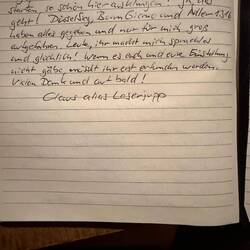 starten, so schön hier ausklingen!
geht! Düsseldorf, BaumGicrus und Adlern 1316
haben alles gegeben und nur für mich groß
aufgefahren. Leute, ihr macht mich sprachlos
und glücklich! Wenn es euch und eure Einstellung
nicht gäbe, müsst ihr erst erfunden werden.
Vielen Dank und auf bald!
Claus alias Laserjupp